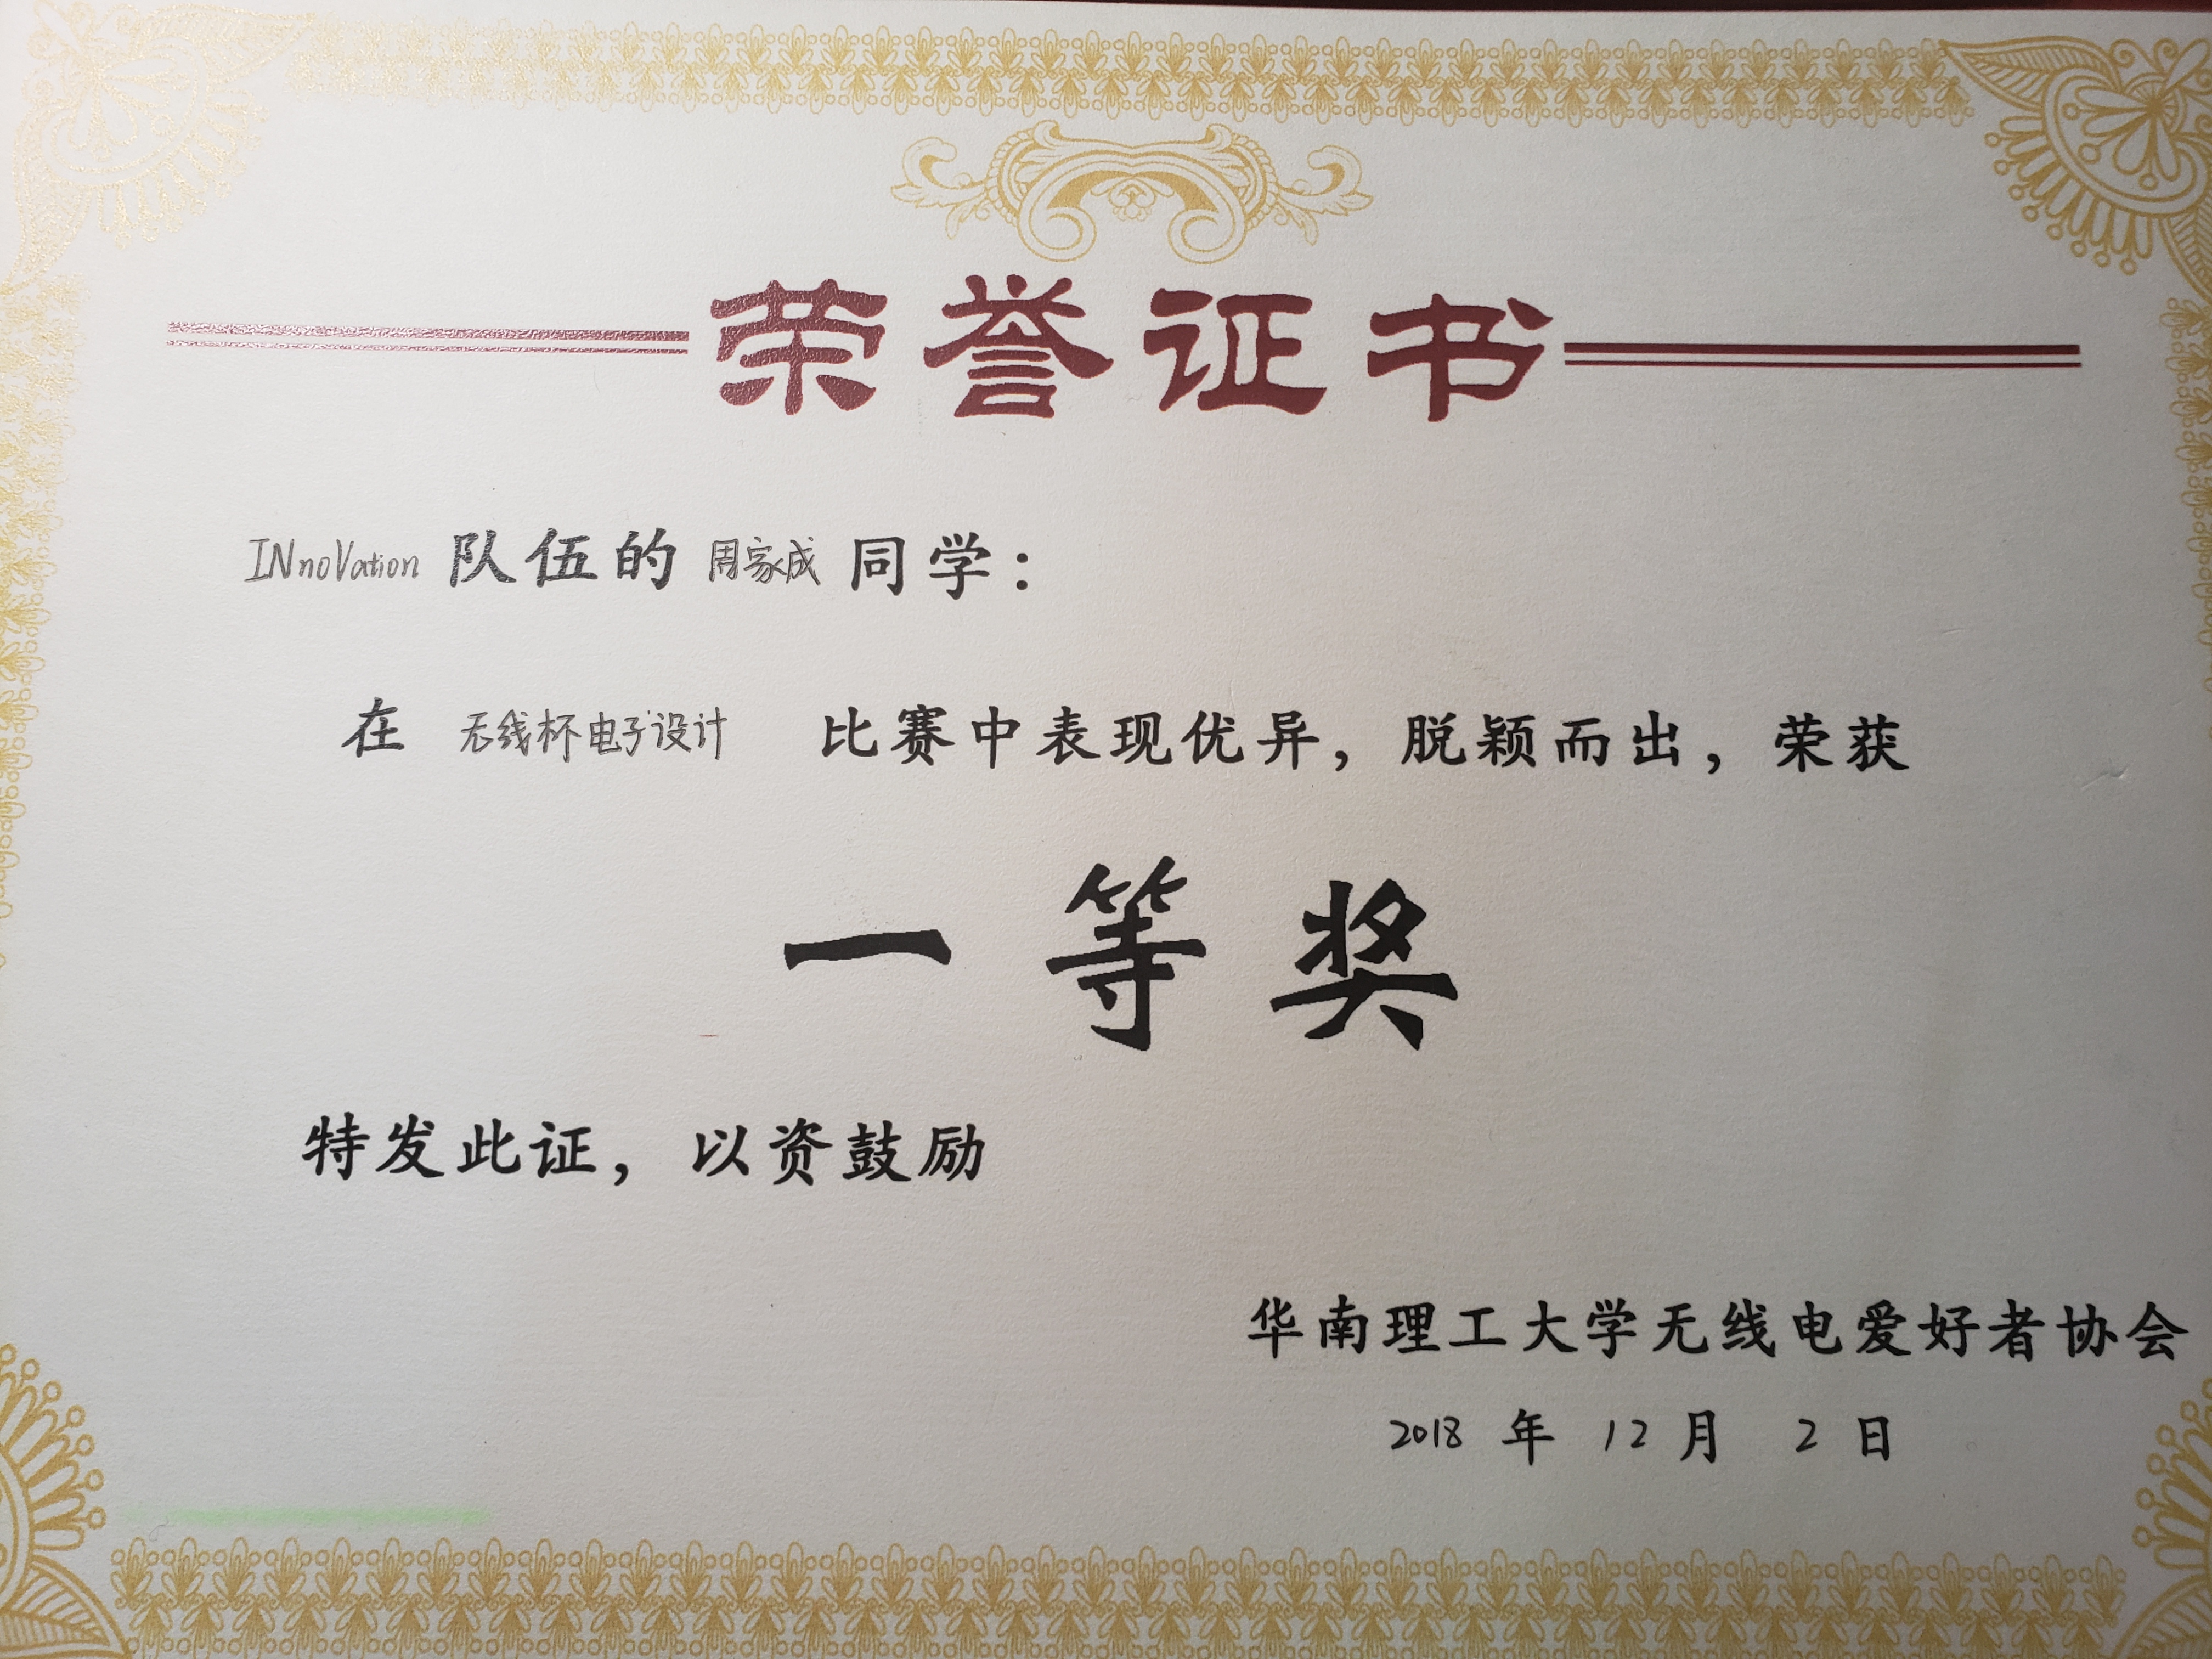 荣誉证书
INnoVation 队伍的 周家成 同学：
在 无线杯电子设计 比赛中表现优异，脱颖而出，荣获
一等奖
特发此证，以资鼓励
华南理工大学无线电爱好者协会
2018 年 12 月 2 日